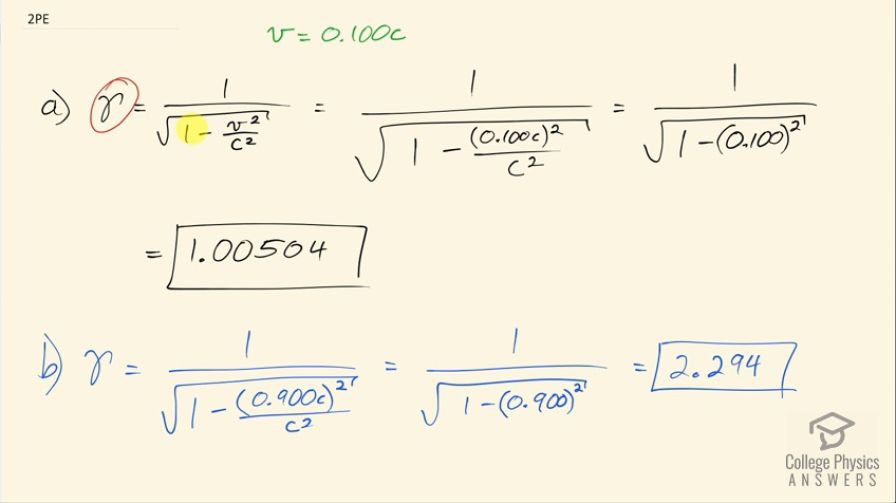 2PE
v = 0.100c
a) γ = 1/√(1 - v²/c²) = 1/√(1 - (0.100c)²/c²) = 1/√(1 - (0.100)²)
= 1.00504
b) γ = 1/√(1 - (0.900c)²/c²) = 1/√(1 - (0.900)²) = 2.294
College Physics
ANSWERS